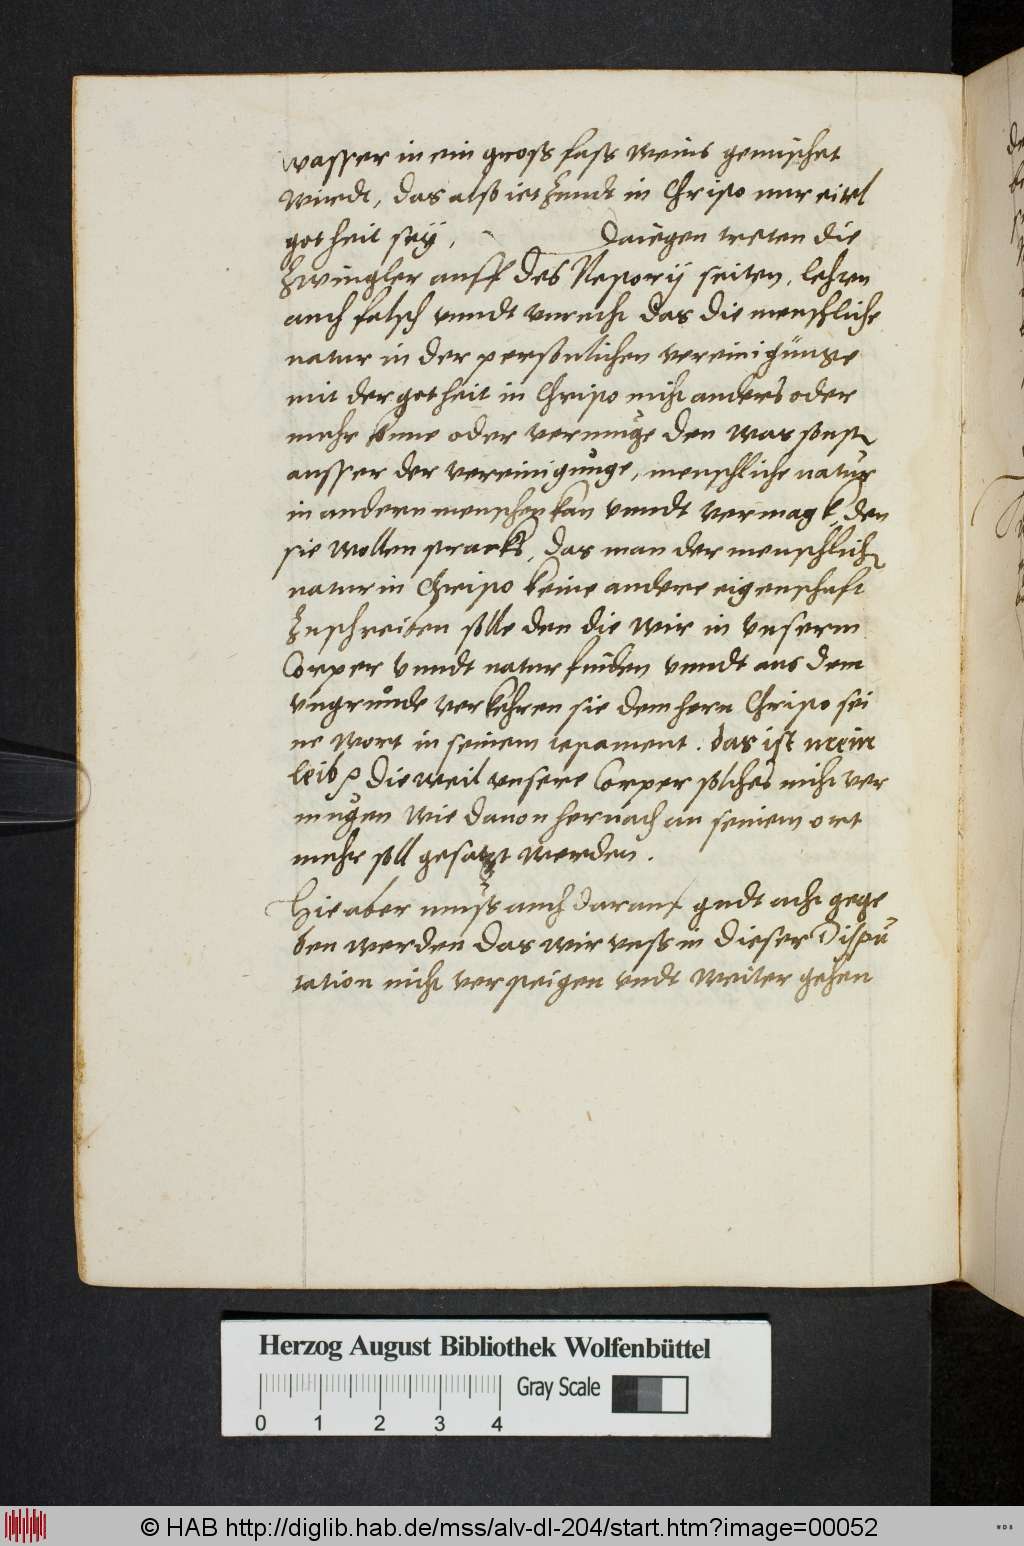 wasser in ein gross fass weins gemischet
wirdt, das also ietzundt in Christo nur eitel
gotheit seÿ, Daiegen treten die
Zwingler auff des Nestorij seiten, lehren
auch falsch vnndt vnrecht das die menschliche
natur in der persönlichen vereinigunge
mit der gotheit in Christo nicht anders oder
mehr könne oder vermuge den was sonst
ausser der vereinigunge, menschliche natur
in andern menschen kan vnndt vermagk, den
sie wollen stracks, das man der menschlichen
natur in Christo keine andere eigenschafft
zuschreiben solle den die wir in vnserm
Corper vnndt natur finden vnndt aus dem
vngrunde verkehren sie dem hern Christo sei
ne wort in seinem testament. das ist mein
leib dieweil vnsere Corper solches nicht ver
mugen wie dauon hernach an seinem ort
mehr soll gesatzt werden.
Hie aber muss auch darauf gudt acht gege
ben werden das wir vnss in dieser Dispu
tation nicht versteigen vndt weiter gehen
Herzog August Bibliothek Wolfenbüttel
Gray Scale
0 1 2 3 4
© HAB http://diglib.hab.de/mss/alv-dl-204/start.htm?image=00052